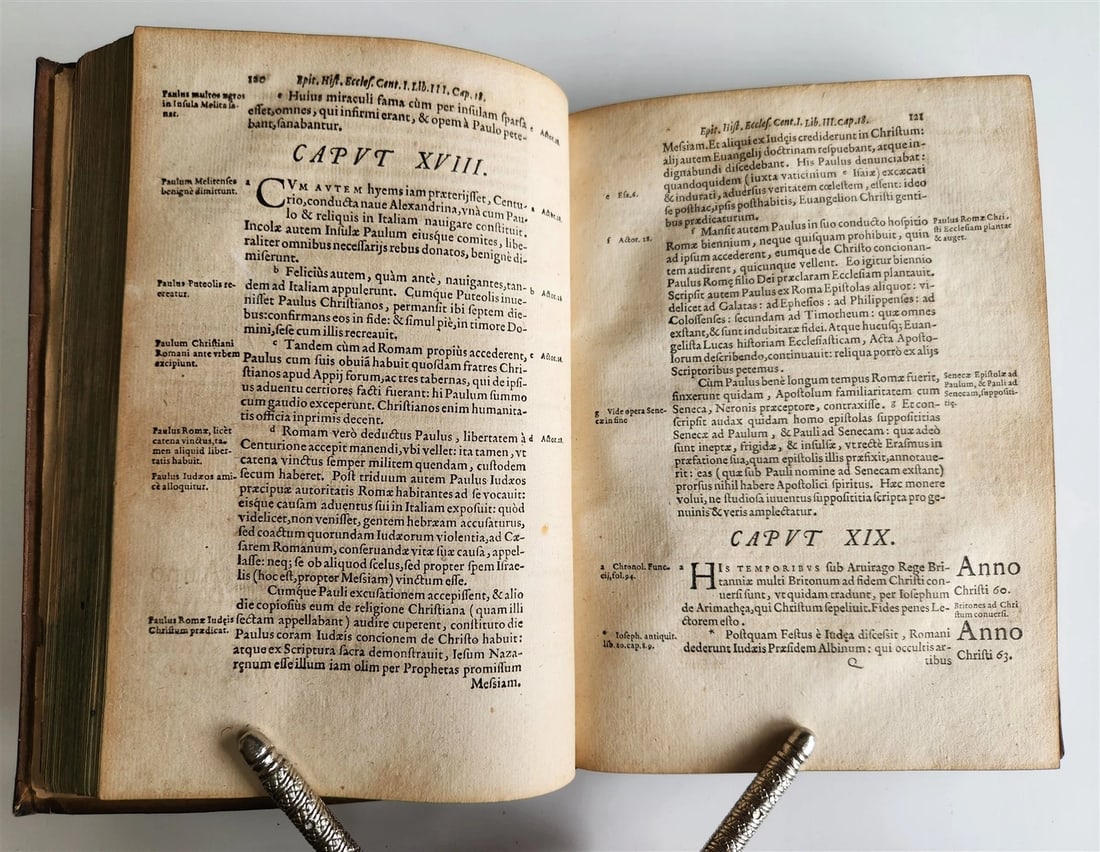 120 Epit. Hist. Eccles. Cent. I. Lib. III. Cap. 18.
Paulus multos ægros
in Insula Melita sa-
nat.
e Huius miraculi fama cùm per insulam sparsa e Actor. 28.
esset, omnes, qui infirmi erant, & opem à Paulo pete-
bant, sanabantur.
CAPVT XVIII.
Paulum Melitenses
benignè dimittunt.
a CVM AVTEM hyems iam præterijsset, Centu- a Actor. 28.
rio, conducta naue Alexandrina, vnà cum Pau-
lo & reliquis in Italiam nauigare constituit.
Incolæ autem Insulæ Paulum eiusque comites, libe-
raliter omnibus necessarijs rebus donatos, benignè di-
miserunt.
b Feliciùs autem, quàm antè, nauigantes, tan- b Actor. 28
Paulus Puteolis re-
creatur.
dem ad Italiam appulerunt. Cumque Puteolis inue-
nisset Paulus Christianos, permansit ibi septem die-
bus: confirmans eos in fide: & simul piè, in timore Do-
mini, sese cum illis recreauit.
Paulum Christiani
Romani ante vrbem
excipiunt.
c Tandem cùm ad Romam propiùs accederent, c Actor. 28.
Paulus cum suis obuiã habuit quosdam fratres Chri-
stianos apud Appij forum, ac tres tabernas, qui de ipsi-
us aduentu certiores facti fuerant: hi Paulum summo
cum gaudio exceperunt. Christianos enim humanita-
tis officia inprimis decent.
Paulus Romæ, licèt
catena vinctus, ta-
men aliquid liber-
tatis habuit.
d Romam verò deductus Paulus, libertatem à d Actor. 28.
Centurione accepit manendi, vbi vellet: ita tamen, vt
catena vinctus semper militem quendam, custodem
secum haberet. Post triduum autem Paulus Iudæos
Paulus Iudæos ami-
cè alloquitur.
præcipuæ autoritatis Romæ habitantes ad se vocauit:
eisque causam aduentus sui in Italiam exposuit: quòd
videlicet, non venisset, gentem hebræam accusaturus,
sed coactum quorundam Iudæorum violentia, ad Cæ-
sarem Romanum, conseruandæ vitæ suæ causa, appel-
lasse: neq; se ob aliquod scelus, sed propter spem Israe-
lis (hoc est, propter Messiam) vinctum esse.
Cumque Pauli excusationem accepissent, & alio
die copiosiùs eum de religione Christiana (quam illi
Paulus Romæ Iudęis
Christum prædicat.
sectam appellabant) audire cuperent, constituto die
Paulus coram Iudæis concionem de Christo habuit:
atque ex Scriptura sacra demonstrauit, Iesum Naza-
ręnum esse illum iam olim per Prophetas promissum
Messiam.
Epit. Hist. Eccles. Cent. I. Lib. III. Cap. 18. 121
Messiam. Et aliqui ex Iudęis crediderunt in Christum:
alij autem Euangelij doctrinam respuebant, atque in-
dignabundi discedebant. His Paulus denunciabat:
e Esa. 6.
quandoquidem (iuxta vaticinium e Isaiæ) excæcati
& indurati, aduersus veritatem cœlestem, essent: ideo
se posthac, ipsis posthabitis, Euangelion Christi genti-
bus prædicaturum.
f Actor. 28.
f Mansit autem Paulus in suo conducto hospitio
Paulus Romæ Chri-
sti Ecclesiam plantat
& auget.
Romæ biennium, neque quisquam prohibuit, quin
ad ipsum accederent, eumque de Christo concionan-
tem audirent, quicunque vellent. Eo igitur biennio
Paulus Romę filio Dei præclaram Ecclesiam plantauit.
Scripsit autem Paulus ex Roma Epistolas aliquot: vi-
delicet ad Galatas: ad Ephesios: ad Philippenses: ad
Colossenses: secundam ad Timotheum: quæ omnes
exstant, & sunt indubitatæ fidei. Atque hucusq; Euan-
gelista Lucas historiam Ecclesiasticam, Acta Aposto-
lorum describendo, continuauit: reliqua porrò ex alijs
Scriptoribus petemus.
Cùm Paulus benè longum tempus Romæ fuerit,
Senecæ Epistolæ ad
Paulum, & Pauli ad
Senecam, suppositi-
tię.
finxerunt quidam, Apostolum familiaritatem cum
g Vide opera Sene-
cæ in fine
Seneca, Neronis præceptore, contraxisse. g Et con-
scripsit audax quidam homo epistolas supposititias
Senecæ ad Paulum, & Pauli ad Senecam: quæ adeò
sunt ineptæ, frigidæ, & insulsæ, vt rectè Erasmus in
præfatione sua, quam epistolis illis præfixit, annotaue-
rit: eas (quæ sub Pauli nomine ad Senecam exstant)
prorsus nihil habere Apostolici spiritus. Hæc monere
volui, ne studiosa iuuentus supposititia scripta pro ge-
nuinis & veris amplectatur.
CAPVT XIX.
a Chronol. Func-
cij, fol. 94.
a HIS TEMPORIBVS sub Aruirago Rege Bri-
Anno
Christi 60.
tanniæ multi Britonum ad fidem Christi con-
uersi sunt, vt quidam tradunt, per Iosephum
Britones ad Chri
stum conuersi.
de Arimathęa, qui Christum sepeliuit. Fides penes Le-
ctorem esto.
* Ioseph. antiquit.
lib. 20. cap. 19.
* Postquam Festus è Iudęa discessit, Romani
Anno
Christi 63.
dederunt Iudæis Præsidem Albinum: qui occultis ar-
Q tibus